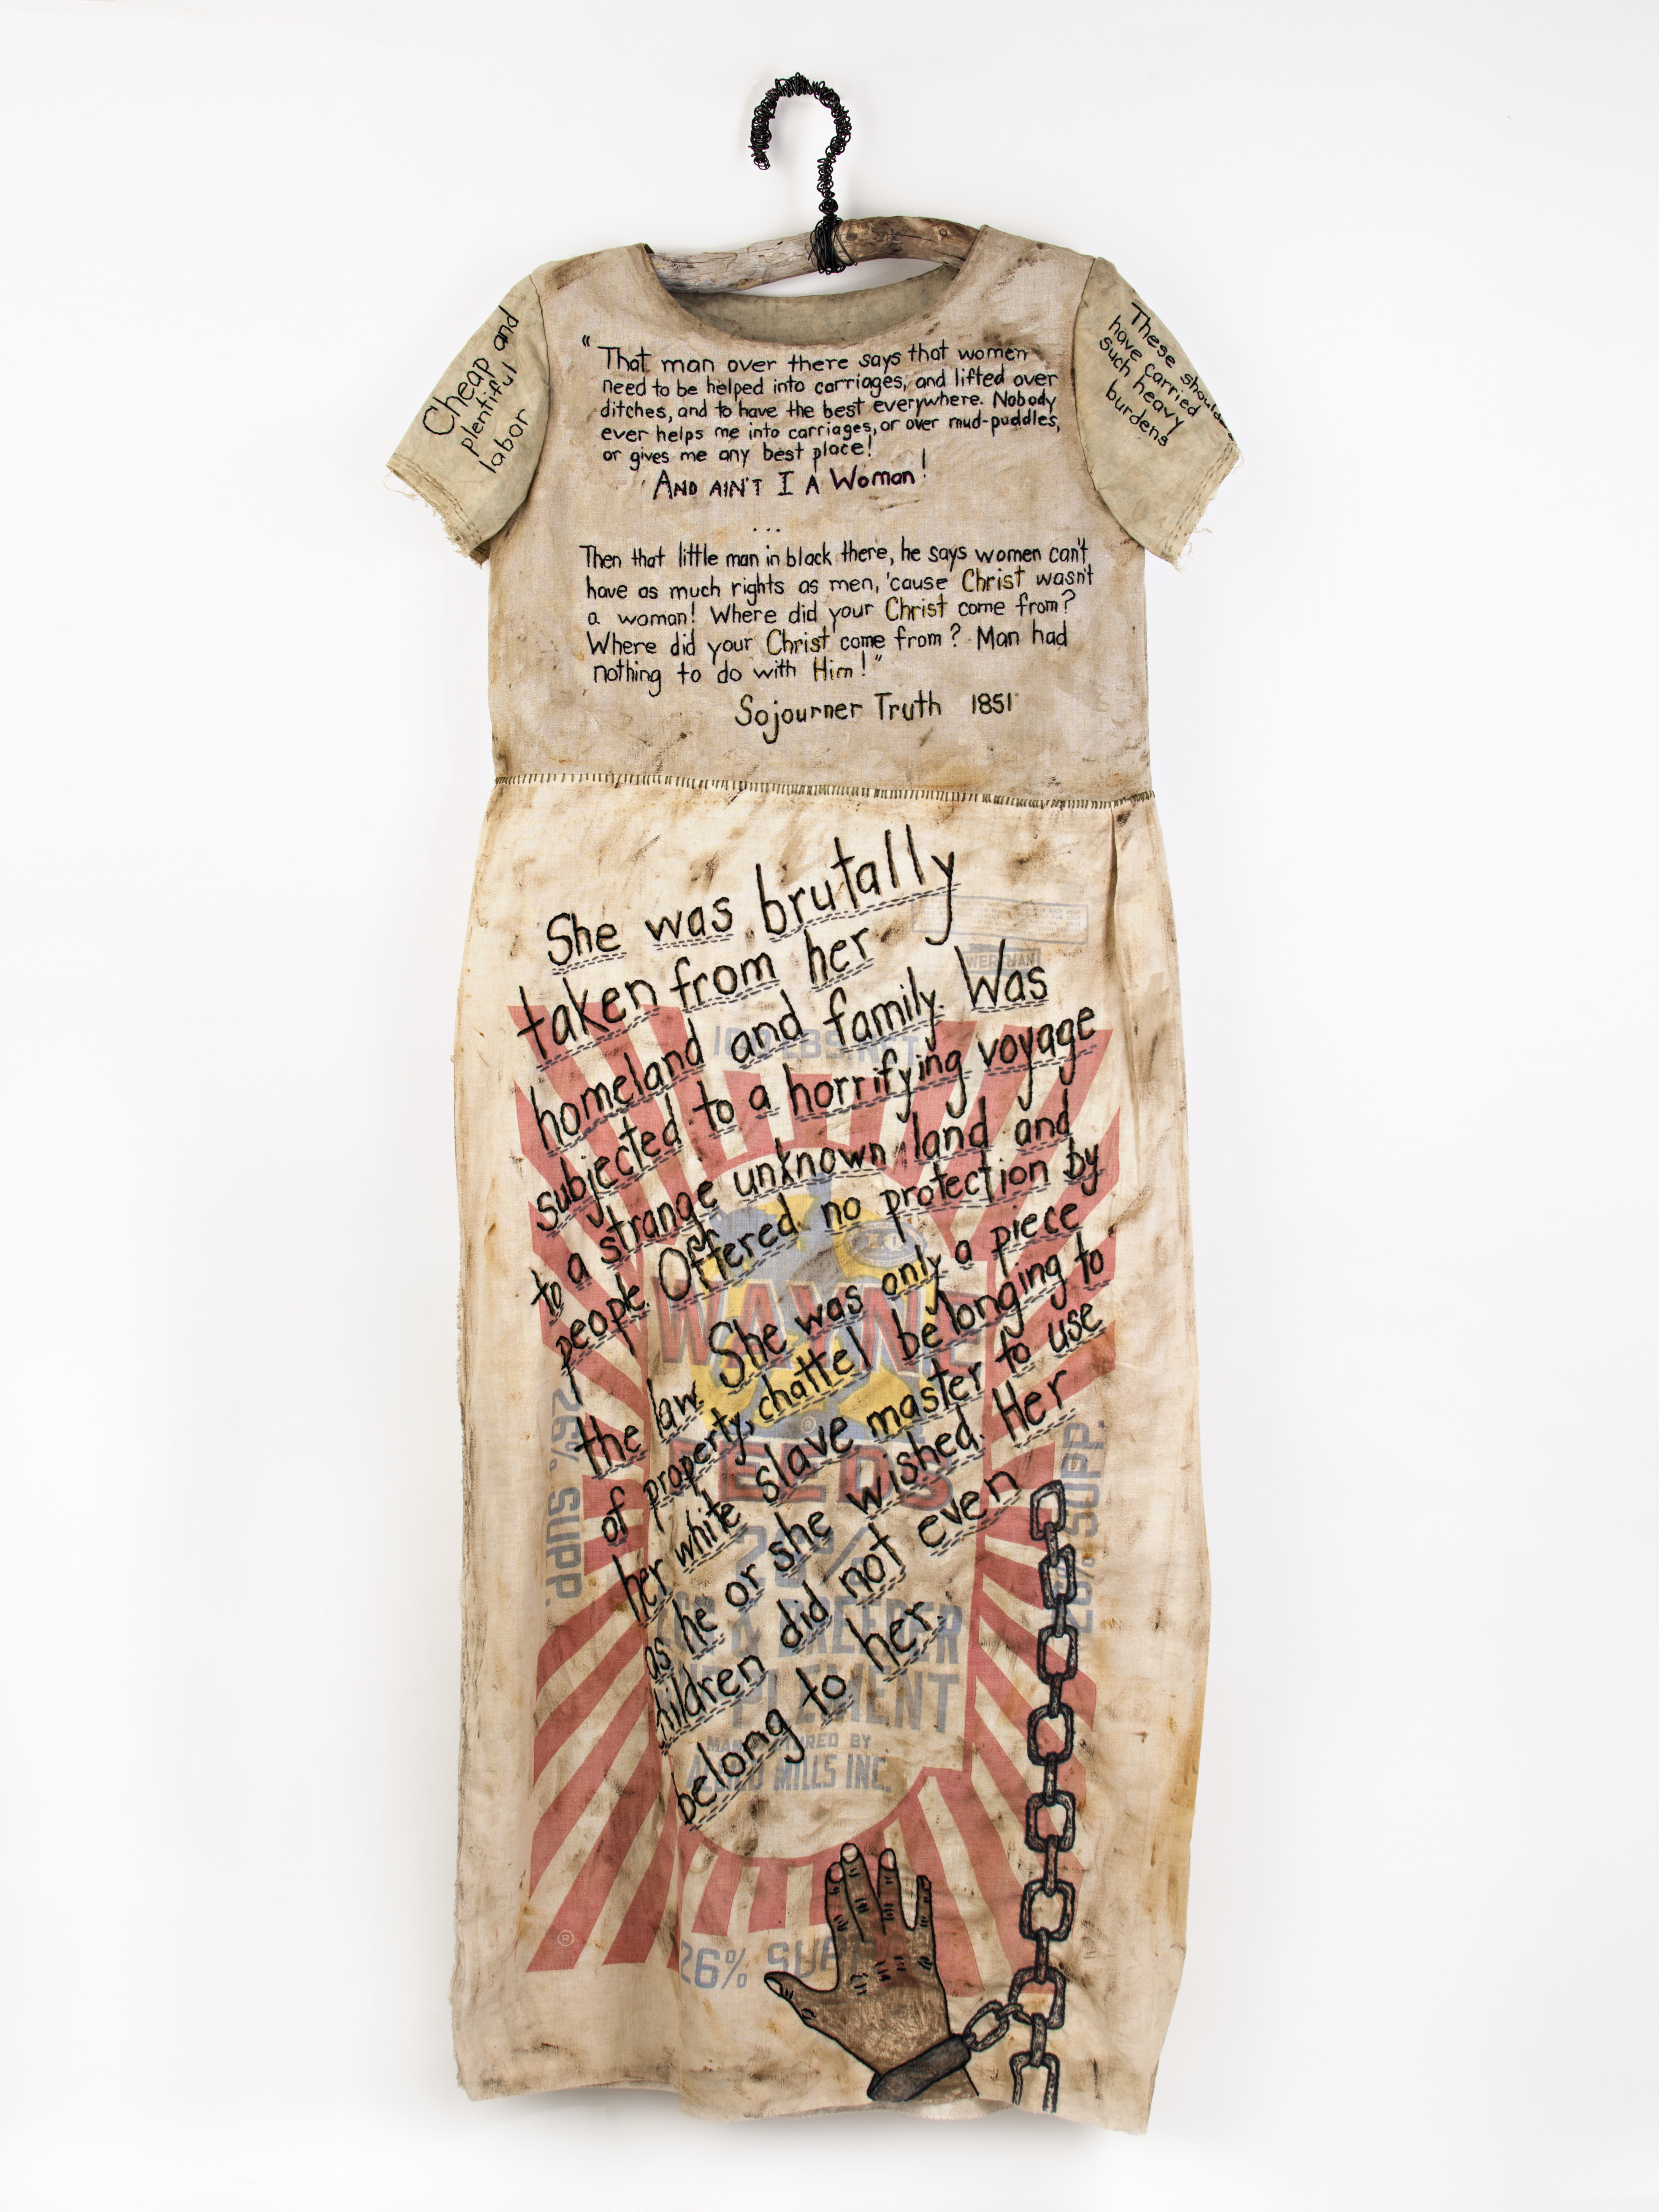 Cheap and
plentiful
labor
These
have carried
such heavy
burdens
"That man over there says that women
need to be helped into carriages, and lifted over
ditches, and to have the best everywhere. Nobody
ever helps me into carriages, or over mud-puddles,
or gives me any best place!
AND AIN'T I A Woman!
...
Then that little man in black there, he says women can't
have as much rights as men, 'cause Christ wasn't
a woman! Where did your Christ come from?
Where did your Christ come from? Man had
nothing to do with Him!"
Sojourner Truth 1851
She was brutally
taken from her
homeland and family. Was
subjected to a horrifying voyage
to a strange unknown land and
people. Offered no protection by
the law. She was only a piece
of property, chattel belonging to
her white slave master to use
as he or she wished. Her
children did not even
belong to her.
100 LBS. NET
WAYNE
FEEDS
26%
& BREEDER
SUPPLEMENT
MANUFACTURED BY
ALLIED MILLS INC.
26% SUPP.
26% SUPP.
26% SUPP.
®
®